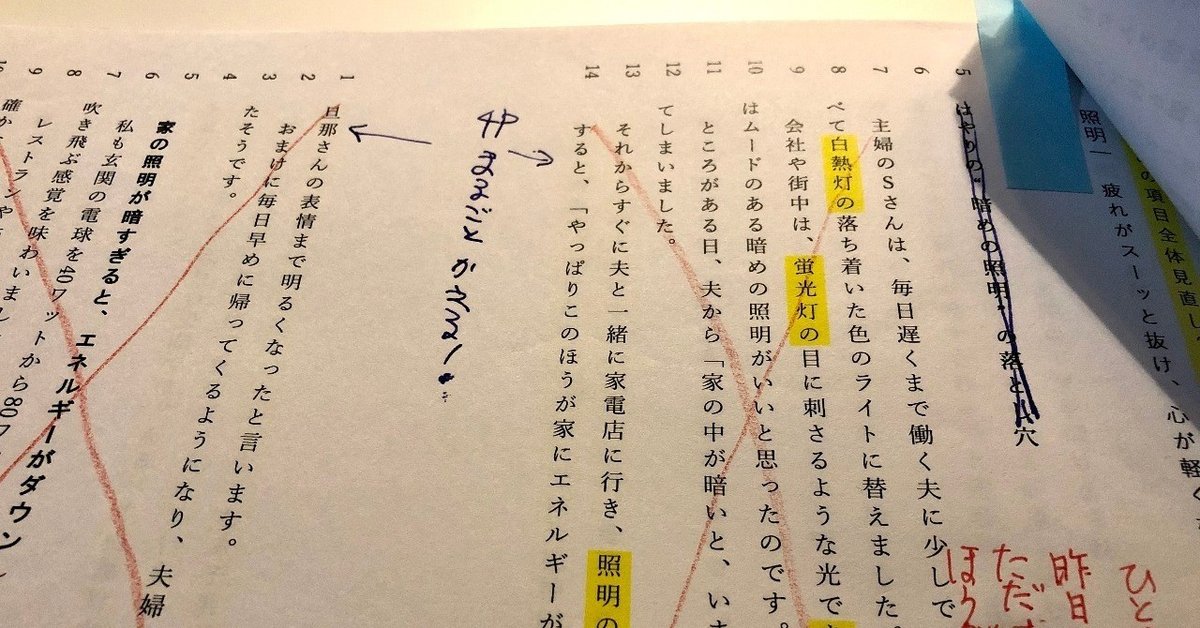 の項目全体見直し
照明一　疲れがスーッと抜け、心が軽く
5
はやりの“暗めの照明”の落とし穴
6
7
主婦のSさんは、毎日遅くまで働く夫に少しで
8
べて白熱灯の落ち着いた色のライトに替えました。
9
会社や街中は、蛍光灯の目に刺さるような光で
10
はムードのある暗めの照明がいいと思ったのです。
11
ところがある日、夫から「家の中が暗いと、いま
12
てしまいました。
13
それからすぐに夫と一緒に家電店に行き、照明の
14
すると、「やっぱりこのほうが家にエネルギーが
まるごとかえる!
1
旦那さんの表情まで明るくなったと言います。
2
おまけに毎日早めに帰ってくるようになり、夫婦
3
たそうです。
4
5
6
家の照明が暗すぎると、エネルギーがダウン
7
私も玄関の電球を40ワットから80ワ
8
吹き飛ぶ感覚を味わいまし
9
レストランや
10
確か
ひと
昨日
ただ
ほう